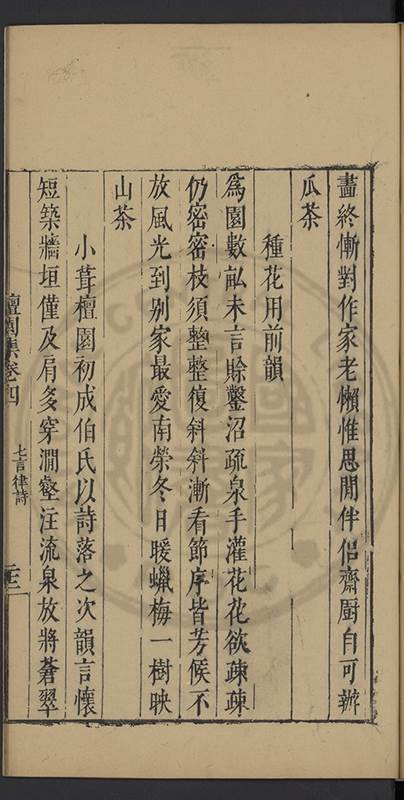 畵終慚對作家老懶惟思閒伴侣齋厨自可辦
瓜茶
種花用前韻
爲園數畝未言賖鑿沼疏泉手灌花花欲疎疎
仍密密枝須整整復斜斜漸看節序皆芳候不
放風光到别家最愛南榮冬日暖蠟梅一樹映
山茶
小葺檀園初成伯氏以詩落之次韻言懷
短築牆垣僅及肩多穿澗壑注流泉放將蒼翠
檀園集卷四
七言律詩
二十三